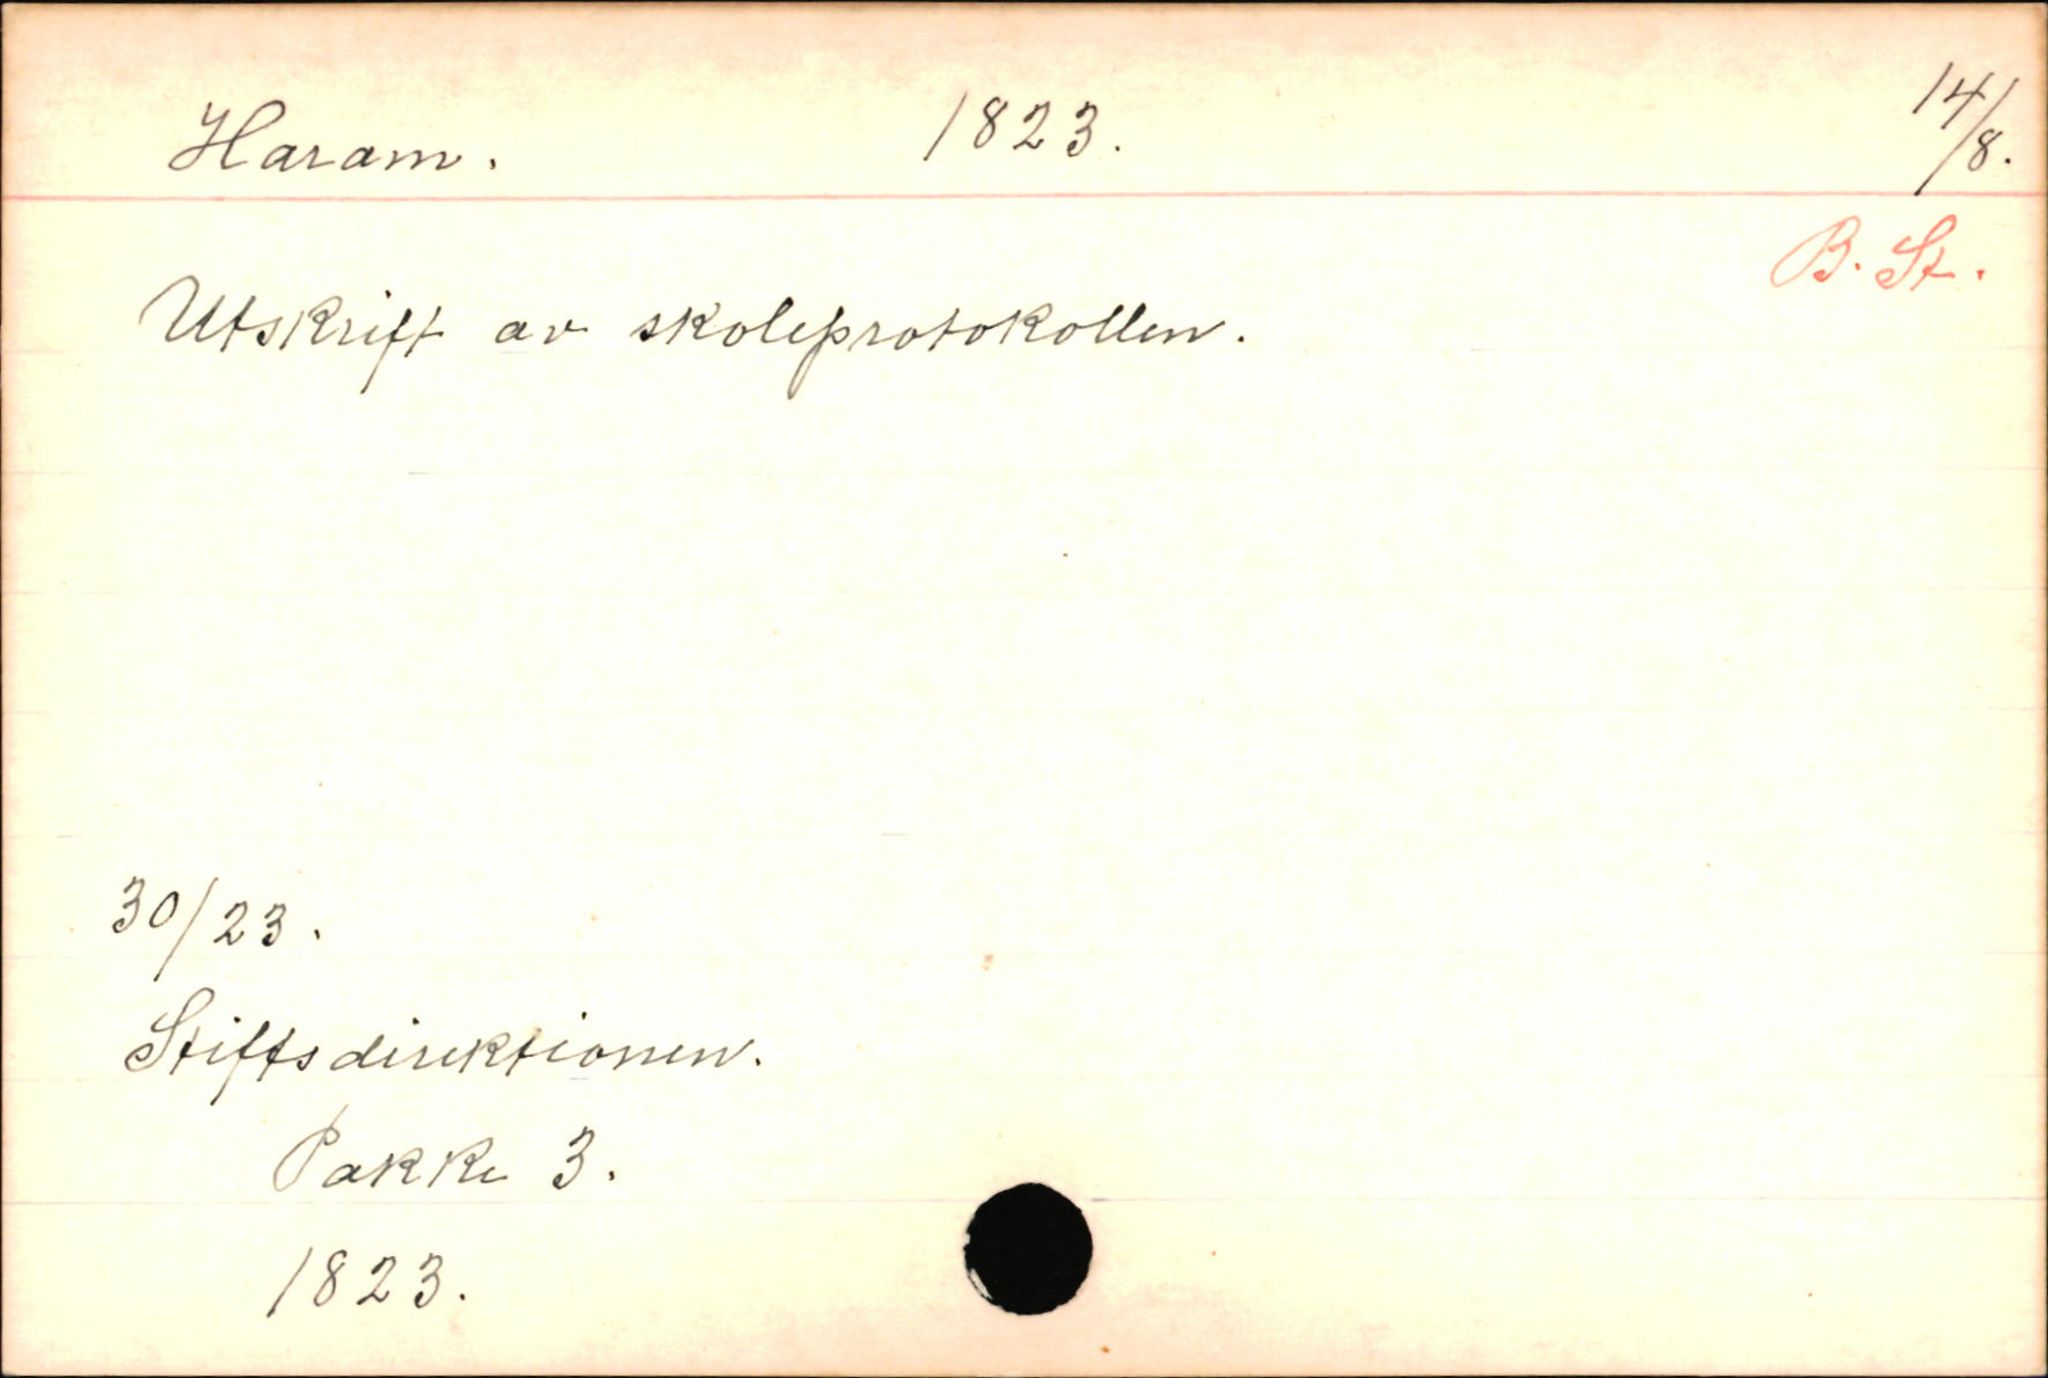 Haram. 1823. 14/8.
B. St.
Utskrift av skoleprotokollen.
30/23.
Stiftsdirektionen.
Pakke 3.
1823.